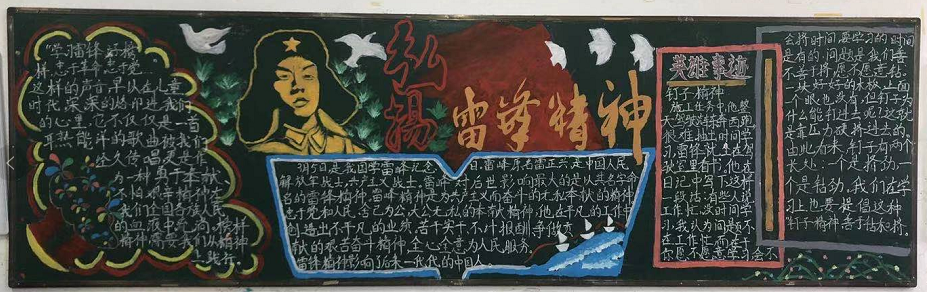 "学习雷锋好榜
样,忠于革命忠于党……
这样的声音早以在儿童
时代,深深的烙印进我们
的心里,它不仅仅是一首
耳熟能详的歌曲被我们
经久传唱,更是作
为一种勇于奉献
我们全国各族人民
的血液里
上践行。
弘揚
雷锋精神
3月5日是我国学雷锋纪念日。雷锋原名雷正兴,是中国人民
解放军战士,共产主义战士。雷锋对后世影响最大的是以其名字命
名的雷锋精神。雷锋精神是为共产主义而奋斗的无私奉献的精神;
忠于党和人民、舍己为公、大公无私的奉献精神;他在平凡的工作中
创造出不平凡的业绩,苦干实干、不计报酬、争做
献的艰苦奋斗精神;全心全意为人民服务。
雷锋精神影响了后来一代代的中国人。
英雄事迹
钉子精神
施工任务中,他整
天驾驶汽车东西跑,
很难抽出时间学
习,雷锋就坐在驾
驶室里看书。他在
日记中写下这样
一段话:有些人说
工作忙,没时间学
习,我认为问题不
在工作忙,而在于
你愿不愿意学习,会不
会挤时间,要学习的时间
是有的,问题是我们善
不善于挤,愿不愿意钻。
一块好好的木板,上面一
个眼也没有,但钉子为
什么能钉进去呢?这就
是靠压力硬挤进去的。
由此看来,钉子有两个
长处:一个是挤劲,一
个是钻劲,我们在学
习上也要提倡这种
"钉子"精神,善于钻木挤。